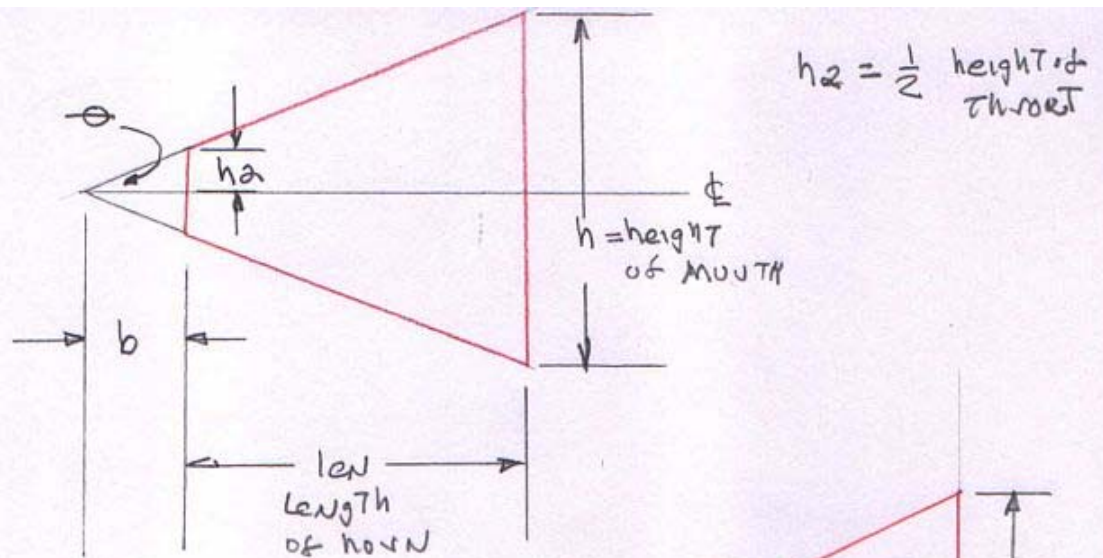 h2 = 1/2 height of
Throat
θ
h2
℄
h = height
of MOUTH
b
len
Length
of horn